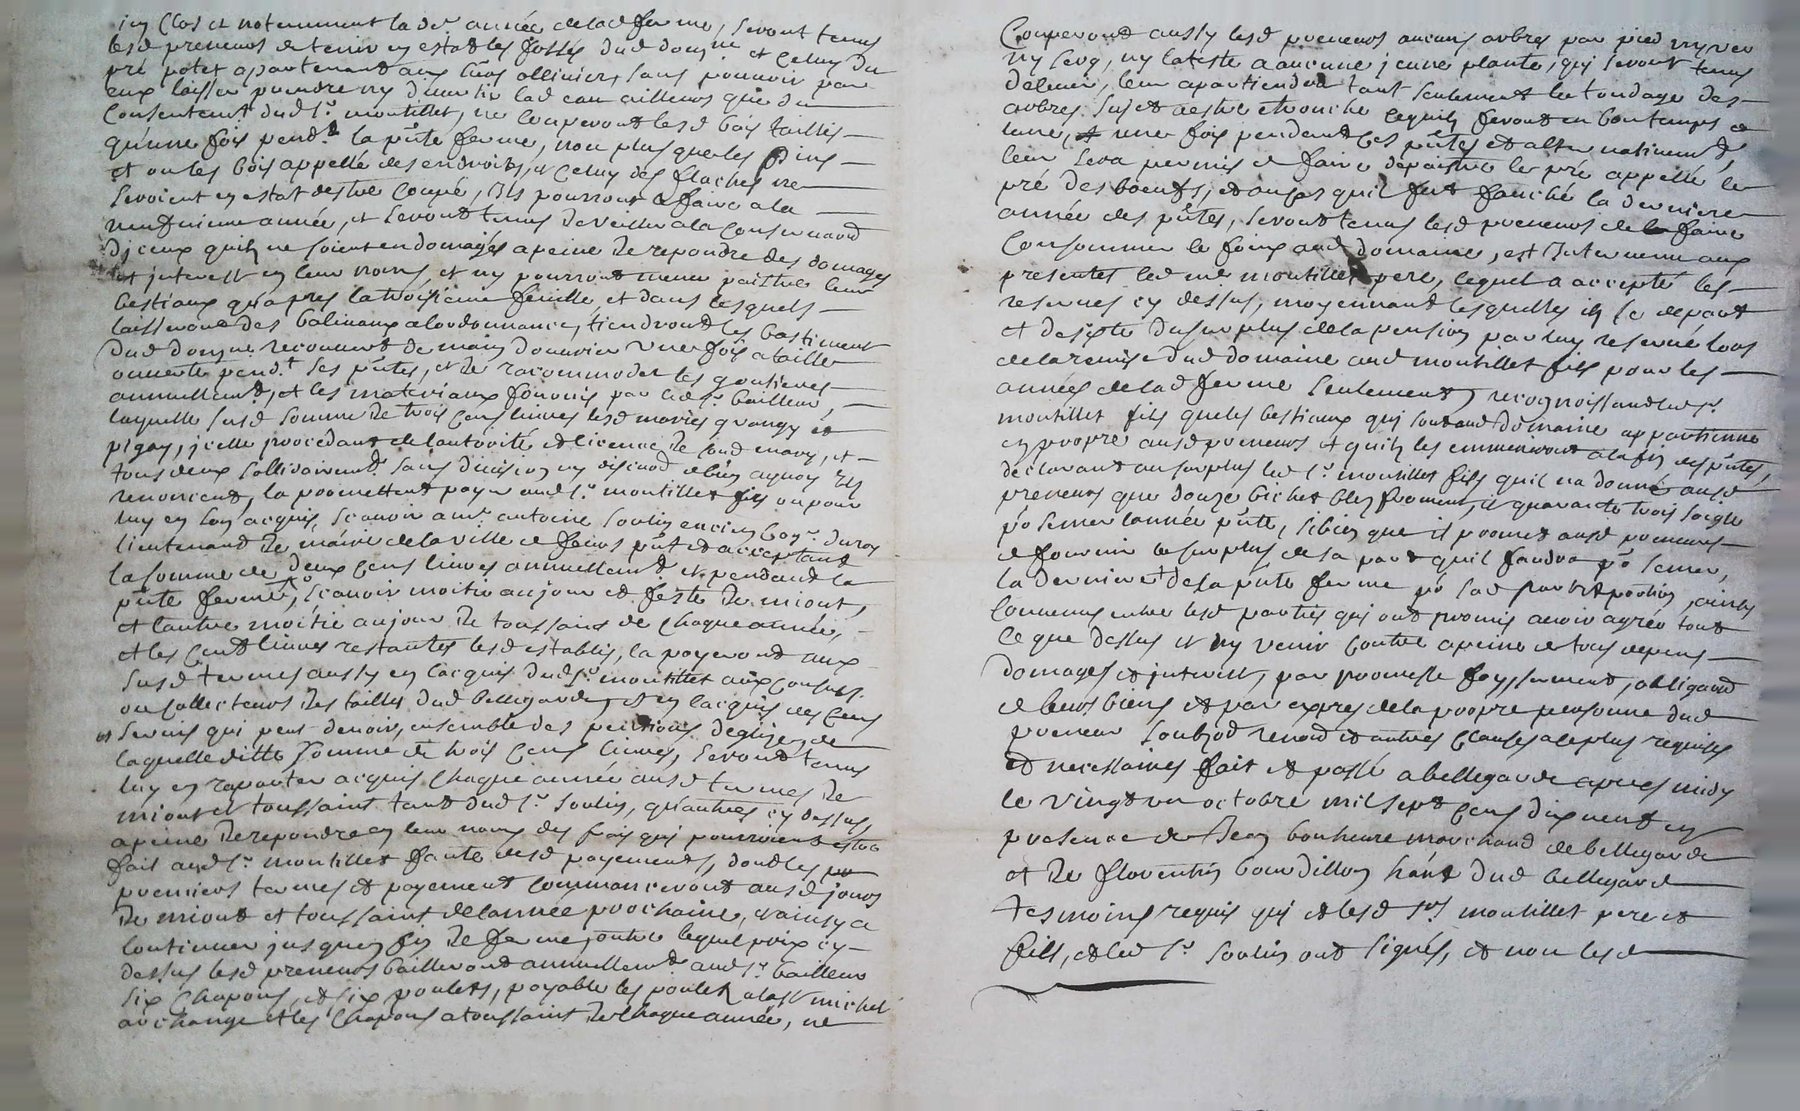 icy clos et notemment la der année de lad ferme, seront tenus
lesd preneurs de tenir en estat les fossés dud domne et celuy du
pré potet apartenant aux srs olliniers sans pouvoir par
eux laisser prendre ny divertir lad eau ailleurs que du
consentemt dud sr montillet, ne couperont lesd bois taillis
qu'une fois pendt la pnte ferme, non plus que les pins
et ou les bois appellé des endroits, et celuy des flaches ne
seroient en estat destre coupé, ils pourront le faire a la
neufvieme année, et seront tenus de veiller a la conservaon
d'jceux quils ne soient endomagés a peine de repondre des domages
et interest en leur noms, et ny pourront mener paistre leurs
bestiaux qu'apres la troisieme feuille, et dans lesquels
laisseront des baliveaux a lordonnance, tiendront les bastiments
dud domne recouverts de main douvrier une fois a taille
ouverte pendt les pntes, et de racommoder les goutieres
annuellemt, et les materiaux fournis par led sr bailleur,
laquelle susd somme de trois cens livres lesd mariés grangy et
pigay, jcelle procedant de lautorité et licence de sond mary, et
tous deux sollidairemt sans division ny discution de bien a quoy ils
renoncent, la promettent payer aud sr montillet fils ou pour
luy en son acquis, scavoir a mr antoine soulin encien coner du roy
lieutenant de maire de la ville de feurs pnt et acceptant
la somme de deux cens livres annuellemt et pendant la
pnte ferme, scavoir moitie au jour et feste de miout,
et lautre moitié au jour de toussaint de chaque année,
et les cent livres restantes lesd establis, la payeront aux
susd termes aussy en lacquis dud sr montillet aux consuls
ou collecteurs des tailles dud bellegarde, et en lacquis des cens
et servis qui peut devoir, ensemble des pentions deglizes, de
laquelle ditte somme de trois cens livres, seront tenus
luy en raporter acquis chaque année ausd termes de
miout et toussaint tant dud sr soulin, qu'autres cy dessus,
a peine de repondre en leur noms des frais qui pourroient estre
fait aud sr montillet faute desd payements, dont les
premiers termes et payement commanceront ausd jours
de miout et toussaint de lannée prochaine, et ainsy a
continuer jusques fin de ferme, outre lequel prix cy
dessus lesd preneurs bailleront annuellemt aud sr bailleur
six chapons, et six poulets, payable les poulets a la st michel
archange et les chapons a toussaint de chaque année, ne
couperont aussy lesd preneurs aucuns arbres par pied ny vert
ny secq, ny la teste a aucune jeune plante, qui seront tenus
délever, leur apartiendra tant seulement le tondage des
arbres sujet a estre etronché lequils feront en bon temps et
lune, une fois pendant les pntes et alternativemt,
leur sera permis de faire depaistre le pré appellé le
pré des boeufs, et apres quil fut fauché la derniere
année des pntes, seront tenus lesd preneurs de faire
consommer le foing aud domaine, est intervenu aux
presentes led me montillet pere, lequel a accepté les
reserves cy dessus, moyennant lesquelles il se depart
et desiste du surplus de la pension par luy reservé lors
de la remise dud domaine aud montillet fils pour les
années de lad ferme seulement, recognoissant led sr
montillet fils que les bestiaux qui sont aud domaine appartienne
en propre ausd preneurs et quils les emmeneront a la fin des pntes,
declarant au surplus led sr montillet fils qu'il na donné ausd
preneurs que douze bichet bled froment, et quarante trois soigle
po semer lannée pnte, sibien que il promet ausd preneurs
de fournir le surplus de sa part quil faudra po semer,
la derniere de la pnte ferme po sad part et portion, ainsy
convenus entre lesd parties qui ont promis avoir agréé tout
ce que dessus et ny venir contre a peine de tous depens
domages et interest, par promesse foy serment, obligaon
de leurs biens et par expres de la propre personne dud
preneur soubzon renon et autres clauses a ce plus requises
et necessaires fait et passé a bellegarde apres midy
le vingt un octobre mil sept cens dix neuf en
presence de Jean bonheure marchand de bellegarde
et de florentin bourdillon hant dud bellegarde
tesmoins requis qui et lesd srs montillet pere et
fils, et led sr soulin ont signés, et non lesd